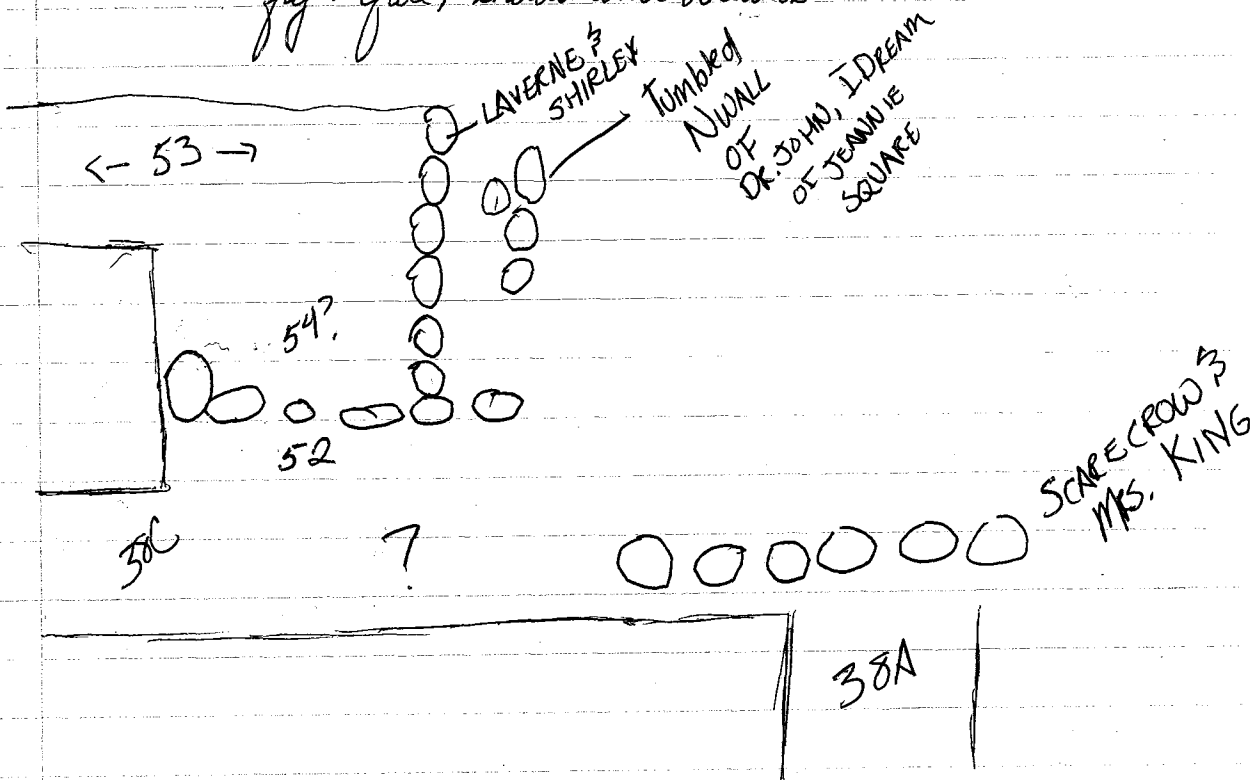 LAVERNE &
SHIRLEY
Tumbled
N WALL
OF
DR. JOHN, I DREAM
OF JEANNIE
SQUARE
<- 53 ->
54?
52
SCARECROW &
MRS. KING
38C
?
38A